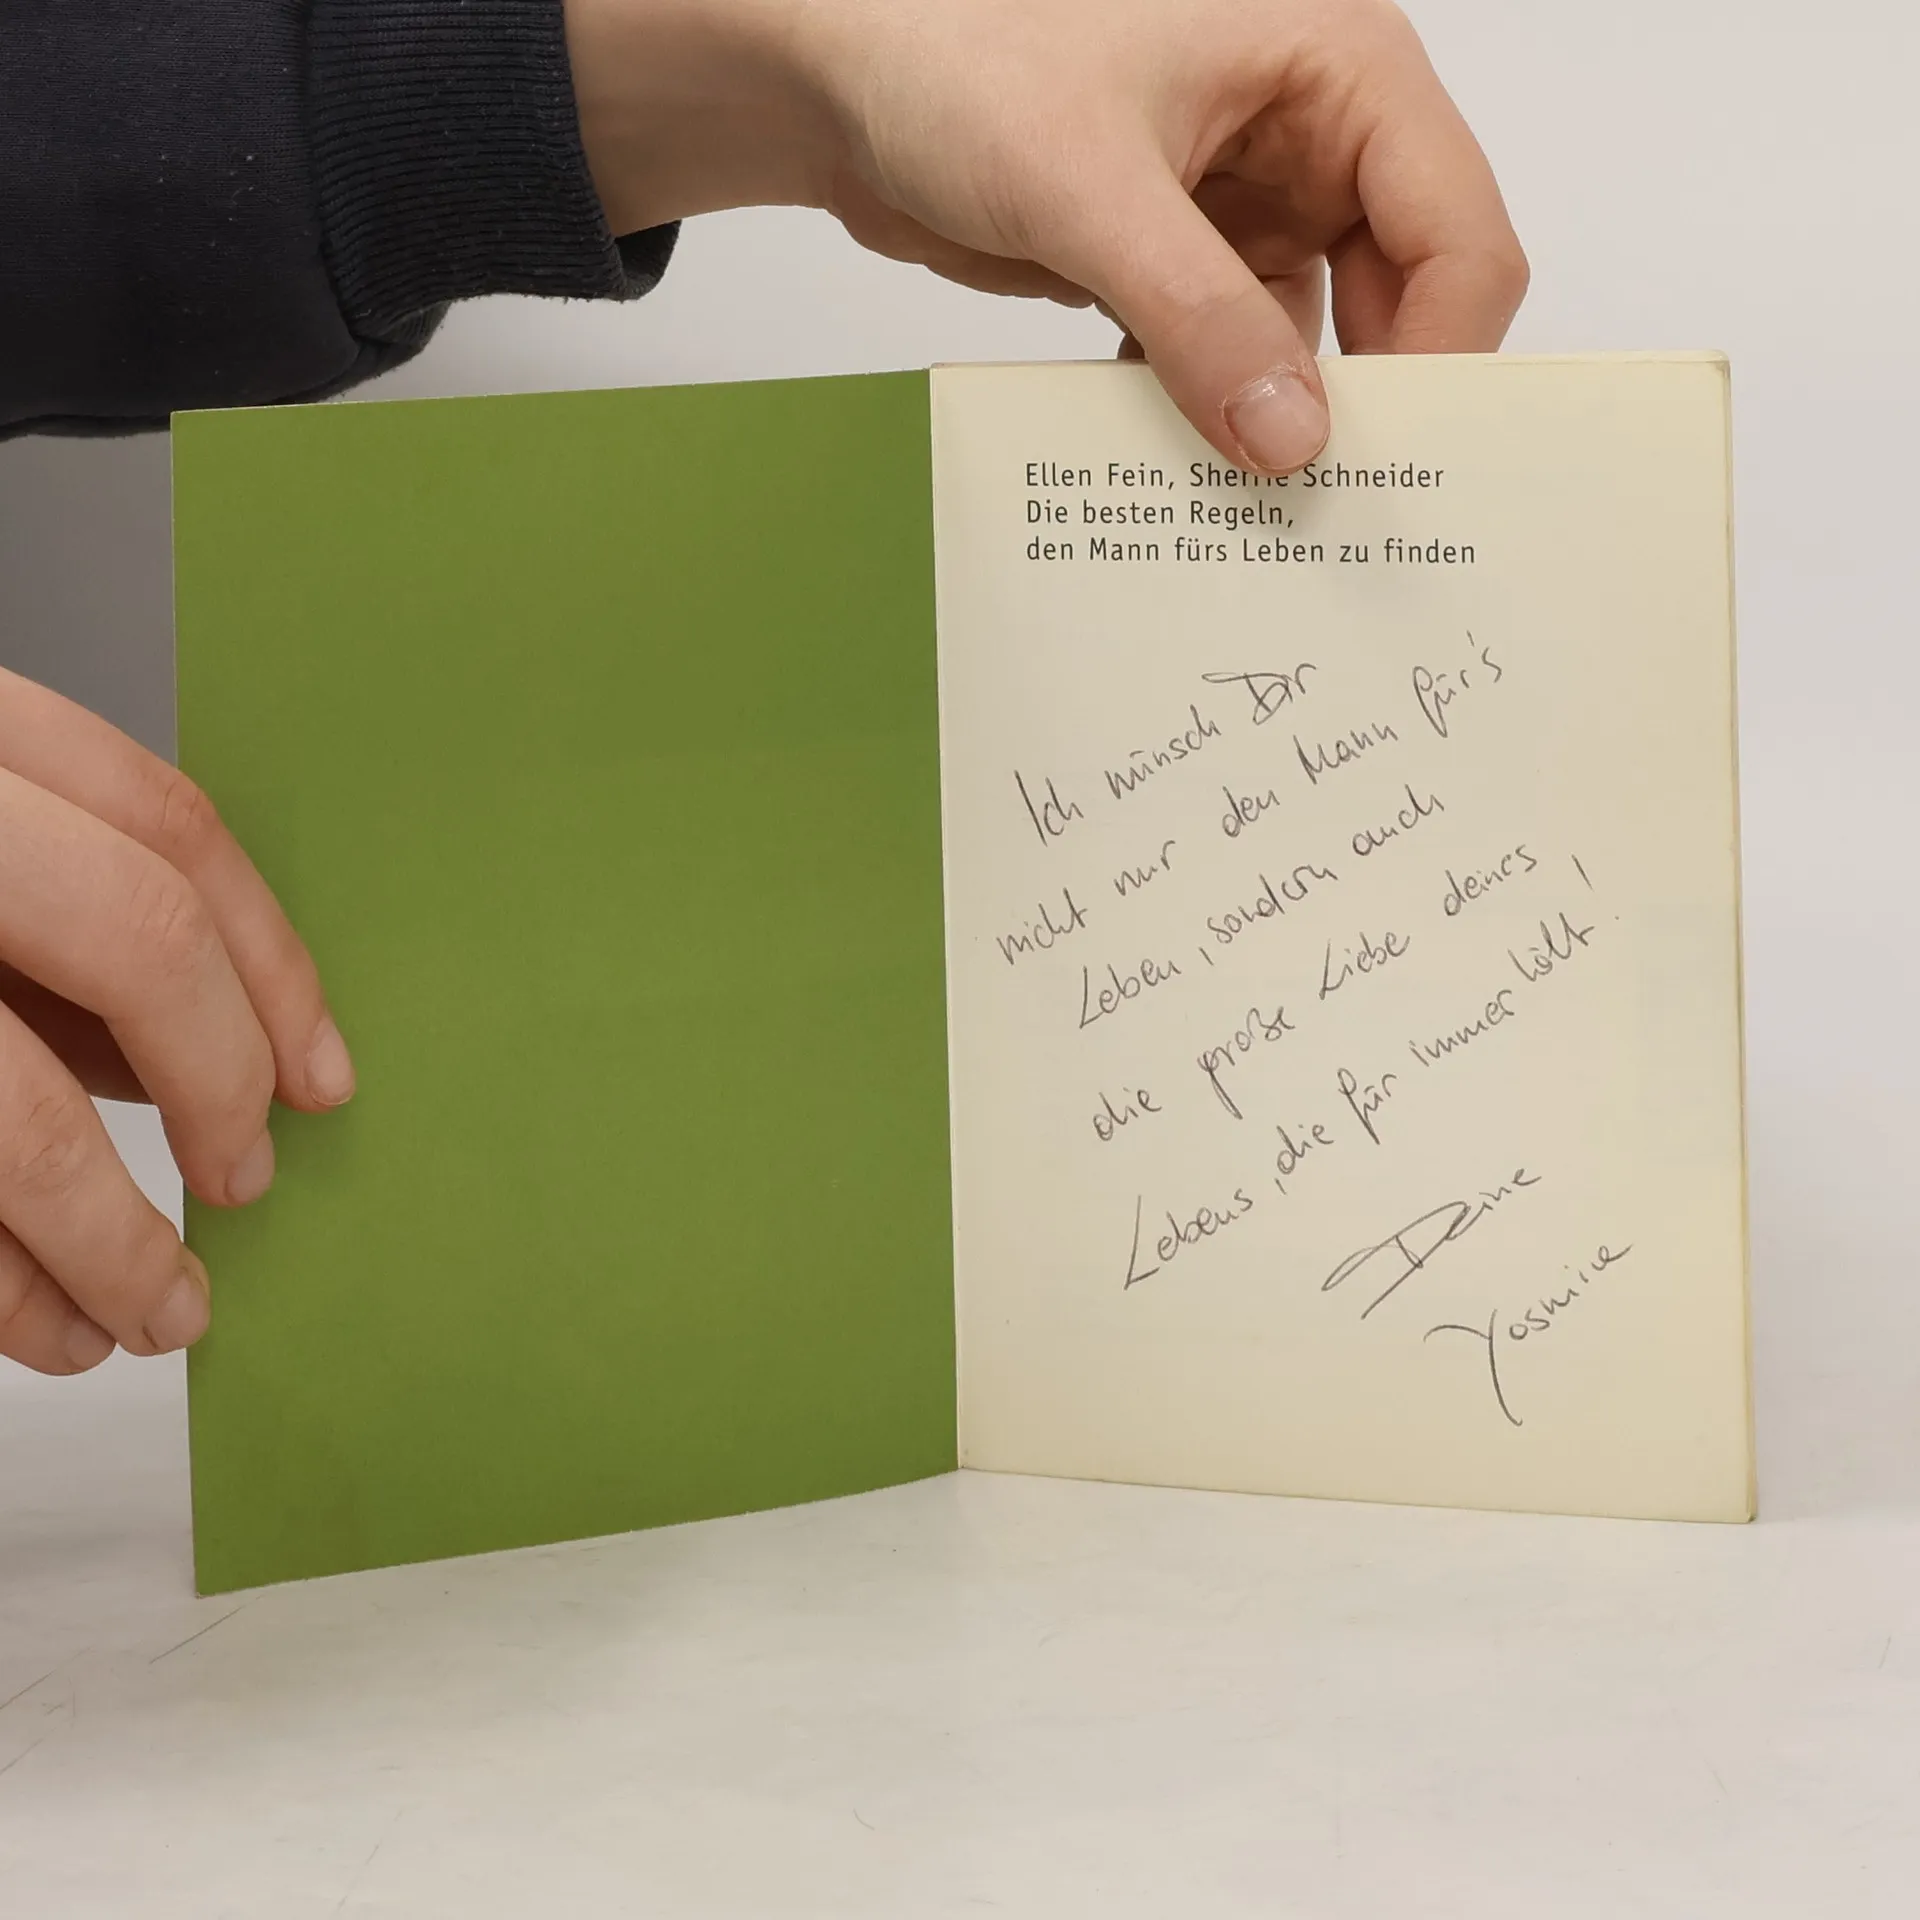 Ellen Fein, Sherrie Schneider
Die besten Regeln,
den Mann fürs Leben zu finden
Ich wünsch Dir
nicht nur den Mann für's
Leben, sondern auch
die große Liebe deines
Lebens, die für immer hält!
Deine
Yasmine